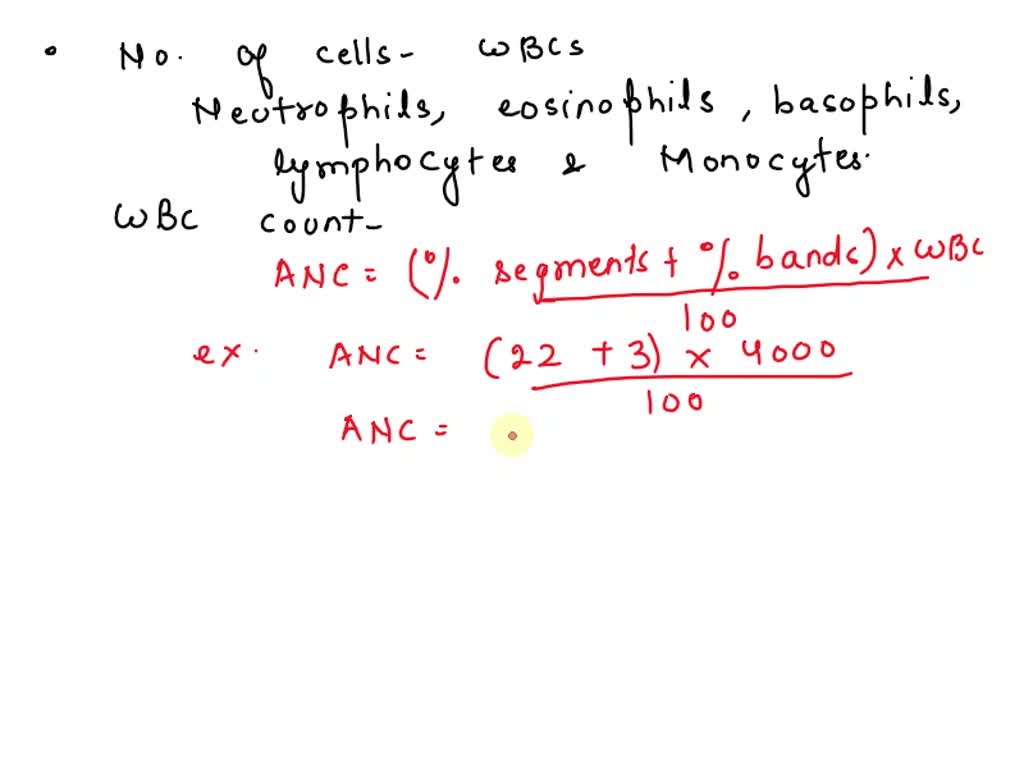 • No. of cells- WBCs
Neutrophils, eosinophils, basophils,
lymphocytes & Monocytes.
WBC count-
ANC = (% segments + % bands) x WBC
100
ex. ANC = (22 + 3) x 4000
100
ANC =